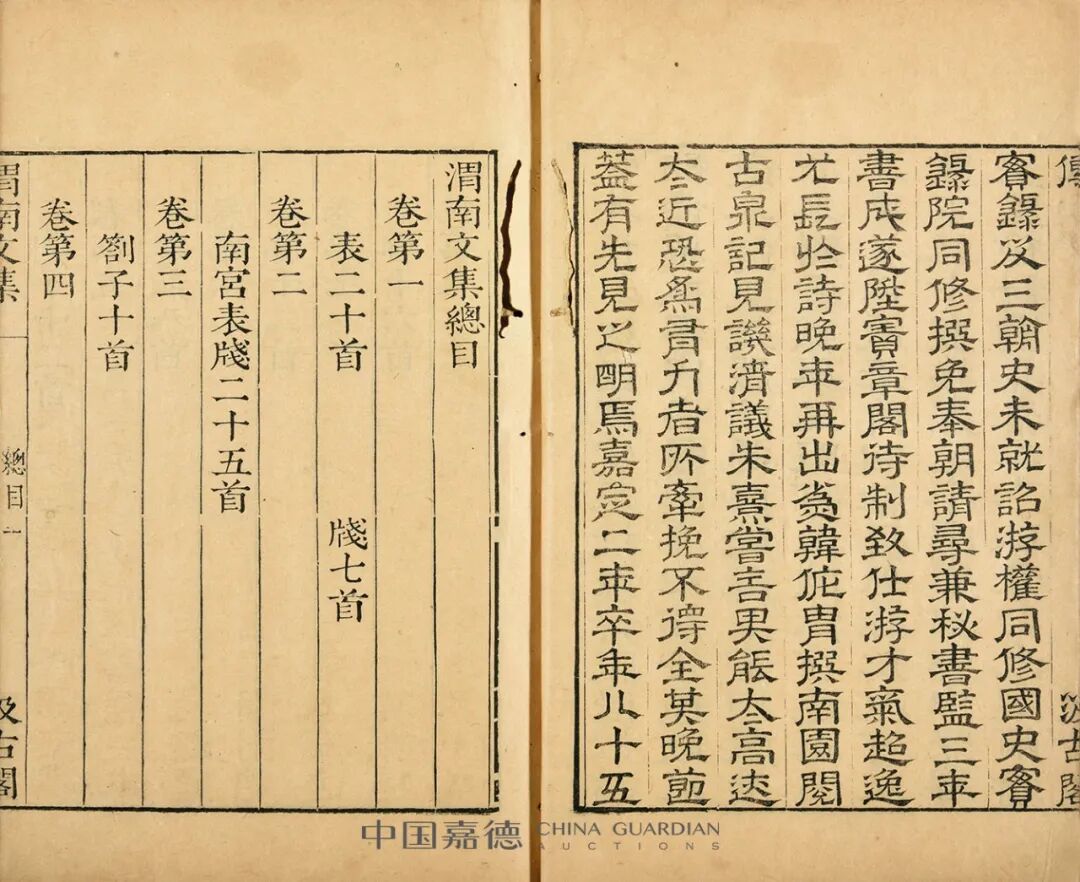 傳 汲古閣
實錄及三朝史未就詔游權同修國史實
錄院同修撰免奉朝請尋兼秘書監三年
書成遂陞寶章閣待制致仕游才氣超逸
尤長於詩晚年再出為韓侂胄撰南園閱
古泉記見譏清議朱熹嘗言其能太高迹
太近恐為有力者所牽挽不得全其晚節
蓋有先見之明焉嘉定二年卒年八十五
渭南文集總目
卷第一
表二十首 牋七首
卷第二
南宮表牋二十五首
卷第三
劄子十首
卷第四
渭南文集 總目 一 汲古閣
中国嘉德 CHINA GUARDIAN
AUCTIONS